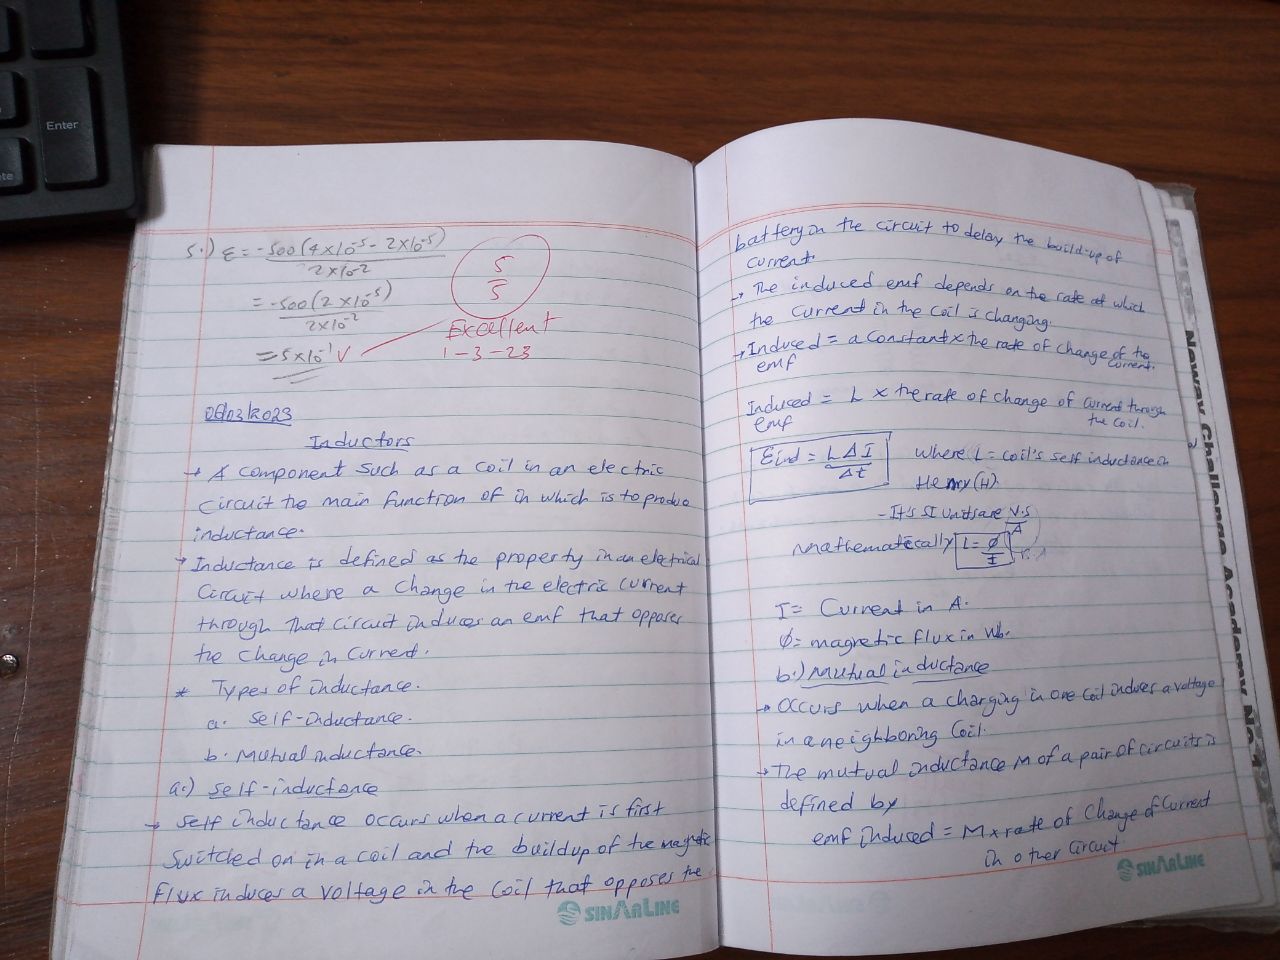 Enter
5.) ε = -500(4×10⁻⁵ - 2×10⁻⁵)
2×10⁻²
= -500(2×10⁻⁵)
2×10⁻²
= 5×10⁻¹ V
5
5
Excellent
1-3-23
06/03/2023
Inductors
→ A component such as a coil in an electric
circuit the main function of in which is to produce
inductance.
→ Inductance is defined as the property in an electrical
Circuit where a change in the electric current
through that circuit induces an emf that opposes
the change in current.
* Types of inductance.
a. Self-inductance.
b. Mutual inductance.
a.) Self-inductance
→ Self inductance occurs when a current is first
Switched on in a coil and the buildup of the magnetic
flux induces a voltage in the coil that opposes the
SINARLINE
battery in the circuit to delay the build-up of
current.
→ The induced emf depends on the rate at which
the current in the coil is changing.
→ Induced = a constant × the rate of change of the
emf current.
Induced = L × the rate of change of current through
emf the coil.
εind = LΔI where L = coil's self inductance in
Δt Henry (H).
- It's SI units are V.s
A
Mathematically L = Φ
I
I = Current in A.
Φ = magnetic flux in Wb.
b.) Mutual inductance
→ Occurs when a charging in one coil induces a voltage
in a neighboring coil.
→ The mutual inductance M of a pair of circuits is
defined by
emf induced = M × rate of change of current
in other circuit
SINARLINE
Neway Challenge Academy No. 1